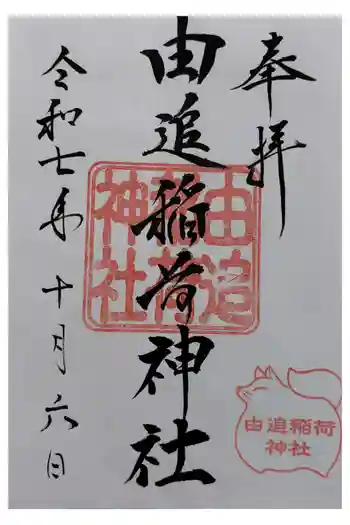 奉拝
由追稲荷神社
令和七年十月六日
由追
稲荷
神社
由追稲荷
神社